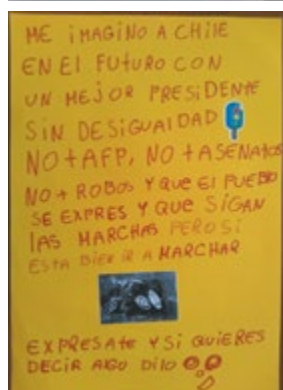 ME IMAGINO A CHILE
EN El FUTURO CON
UN MEJOR PRESIDENTE
SIN DESIGUALDAD
NO + AFP, NO + ASENATOS
NO + ROBOS Y QUE El PUEBO
SE EXPRES Y QUE SIGAN
lAS MARCHAS PERO SI
ESTA BIEN IR A MARCHAR
EXPRESATE Y SI QUIERES
DECIR AlGO DIlO